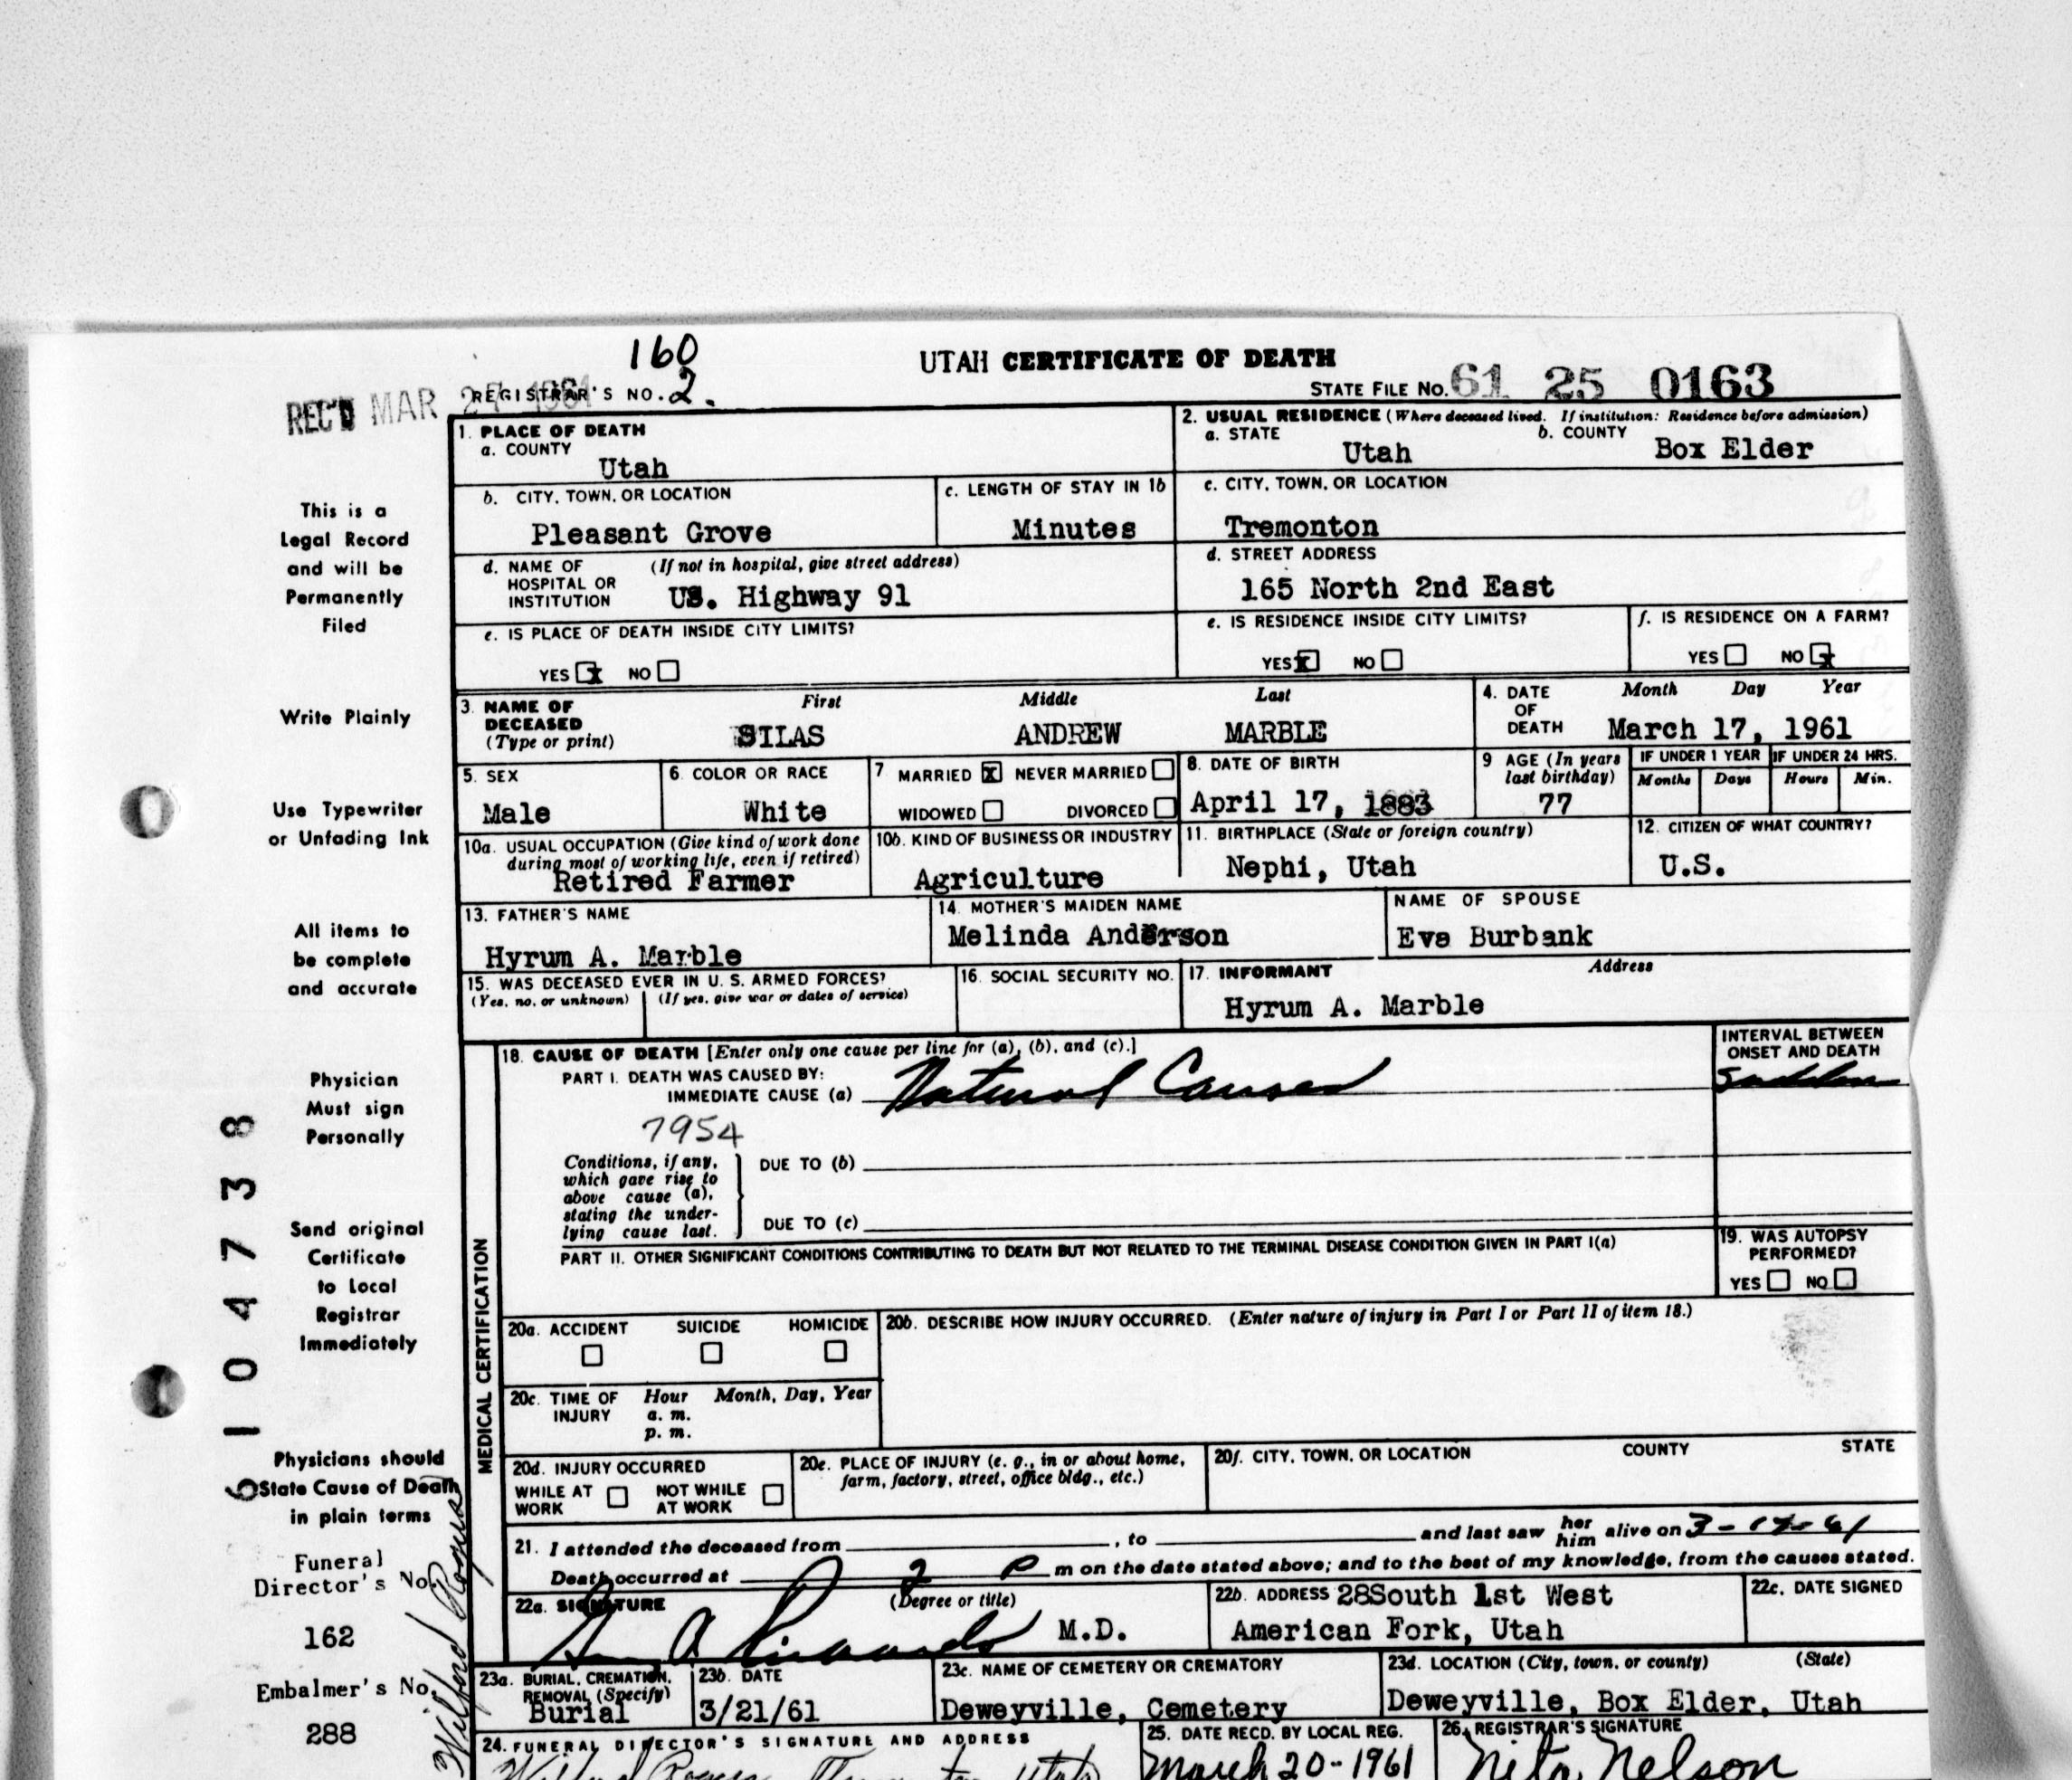 160
UTAH CERTIFICATE OF DEATH
REC'D MAR 27 1961
REGISTRAR'S NO. 2.
STATE FILE NO. 61 25 0163
1. PLACE OF DEATH
a. COUNTY
Utah
2. USUAL RESIDENCE (Where deceased lived. If institution: Residence before admission)
a. STATE
Utah
b. COUNTY
Box Elder
b. CITY, TOWN, OR LOCATION
Pleasant Grove
c. LENGTH OF STAY IN 1b
Minutes
c. CITY, TOWN, OR LOCATION
Tremonton
d. NAME OF (If not in hospital, give street address)
HOSPITAL OR
INSTITUTION US. Highway 91
d. STREET ADDRESS
165 North 2nd East
e. IS PLACE OF DEATH INSIDE CITY LIMITS?
YES x NO
e. IS RESIDENCE INSIDE CITY LIMITS?
YES x NO
f. IS RESIDENCE ON A FARM?
YES NO x
3. NAME OF
DECEASED
(Type or print)
First Middle Last
SILAS ANDREW MARBLE
4. DATE
OF
DEATH
Month Day Year
March 17, 1961
5. SEX
Male
6. COLOR OR RACE
White
7 MARRIED x NEVER MARRIED
WIDOWED DIVORCED
8. DATE OF BIRTH
April 17, 1883
9 AGE (In years
last birthday)
77
IF UNDER 1 YEAR
Months Days
IF UNDER 24 HRS.
Hours Min.
10a. USUAL OCCUPATION (Give kind of work done
during most of working life, even if retired)
Retired Farmer
10b. KIND OF BUSINESS OR INDUSTRY
Agriculture
11. BIRTHPLACE (State or foreign country)
Nephi, Utah
12. CITIZEN OF WHAT COUNTRY?
U.S.
13. FATHER'S NAME
Hyrum A. Marble
14. MOTHER'S MAIDEN NAME
Melinda Anderson
NAME OF SPOUSE
Eva Burbank
15. WAS DECEASED EVER IN U. S. ARMED FORCES?
(Yes, no, or unknown) (If yes, give war or dates of service)
16. SOCIAL SECURITY NO.
17. INFORMANT Address
Hyrum A. Marble
MEDICAL CERTIFICATION
18. CAUSE OF DEATH [Enter only one cause per line for (a), (b), and (c).]
PART I. DEATH WAS CAUSED BY:
IMMEDIATE CAUSE (a) Natural Causes
INTERVAL BETWEEN
ONSET AND DEATH
Sudden
7954
Conditions, if any,
which gave rise to
above cause (a),
stating the under-
lying cause last.
DUE TO (b)
DUE TO (c)
PART II. OTHER SIGNIFICANT CONDITIONS CONTRIBUTING TO DEATH BUT NOT RELATED TO THE TERMINAL DISEASE CONDITION GIVEN IN PART I(a)
19. WAS AUTOPSY
PERFORMED?
YES NO
20a. ACCIDENT SUICIDE HOMICIDE
20b. DESCRIBE HOW INJURY OCCURRED. (Enter nature of injury in Part I or Part II of item 18.)
20c. TIME OF Hour Month, Day, Year
INJURY a. m.
p. m.
20d. INJURY OCCURRED
WHILE AT WORK NOT WHILE AT WORK
20e. PLACE OF INJURY (e. g., in or about home,
farm, factory, street, office bldg., etc.)
20f. CITY, TOWN, OR LOCATION COUNTY STATE
21. I attended the deceased from , to and last saw her him alive on 3-17-61
Death occurred at 2 P m on the date stated above; and to the best of my knowledge, from the causes stated.
22a. SIGNATURE (Degree or title)
M.D.
22b. ADDRESS 28South 1st West
American Fork, Utah
22c. DATE SIGNED
23a. BURIAL, CREMATION,
REMOVAL (Specify)
Burial
23b. DATE
3/21/61
23c. NAME OF CEMETERY OR CREMATORY
Deweyville, Cemetery
23d. LOCATION (City, town, or county) (State)
Deweyville, Box Elder, Utah
24. FUNERAL DIRECTOR'S SIGNATURE AND ADDRESS
Wilford Rogers Tremonton Utah
25. DATE RECD. BY LOCAL REG.
March 20-1961
26. REGISTRAR'S SIGNATURE
Nita Nelson
This is a
Legal Record
and will be
Permanently
Filed
Write Plainly
Use Typewriter
or Unfading Ink
All items to
be complete
and accurate
Physician
Must sign
Personally
Send original
Certificate
to Local
Registrar
Immediately
Physicians should
State Cause of Death
in plain terms
Funeral
Director's No.
162
Embalmer's No.
288
6104738
Wilford Rogers